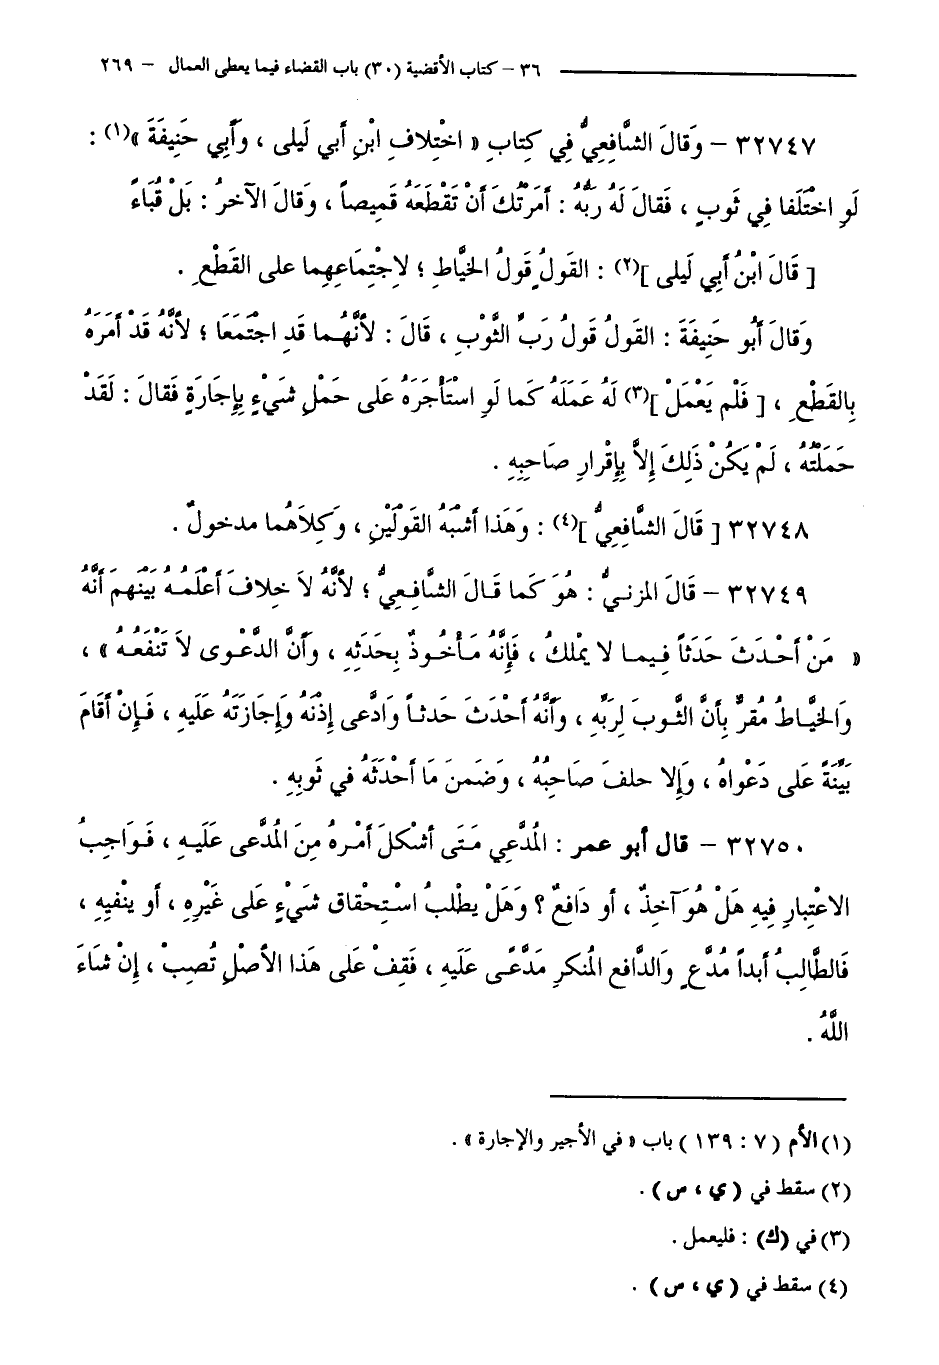 ٣٦ – كتاب الأقضية (٣٠) باب القضاء فيما يعطى العمال – ٢٦٩
٣٢٧٤٧ – وَقَالَ الشَّافِعِيُّ فِي كِتَابِ « اخْتِلافِ ابْنِ أَبي لَيلى ، وَأَبِي حَنِيفَةَ »(١) :
لَوِ اخْتَلَفا فِي ثَوبٍ ، فَقالَ لَهُ رَبُّهُ : أَمَرْتُكَ أَنْ تَقْطَعَهُ قَمِيصاً ، وَقَالَ الآخرُ : بَلْ قُبَاءً
[ قَالَ ابْنُ أَبِي لَيلى ](٢) : القَولُ قَولُ الخيَّاطِ ؛ لاجْتِمَاعِهِما على القَطْعِ .
وَقَالَ أَبُو حَنِيفَةَ : القَولُ قَولُ رَبِّ الثَّوْبِ ، قَالَ : لأَنَّهُما قَدِ اجتَمَعَا ؛ لأَنَّهُ قَدْ أَمَرَهُ
بِالقَطْعِ ، [ فَلَمْ يَعْمَلْ ](٣) لَهُ عَمَلَهُ كَما لَو اسْتَأْجَرَهُ عَلَى حَمْلِ شَيْءٍ بِإِجَارَةٍ فَقالَ : لَقَدْ
حَمَلْتُهُ ، لَمْ يَكُنْ ذَلِكَ إِلاَّ بِإِقْرارِ صَاحِبِهِ .
٣٢٧٤٨ [ قَالَ الشَّافِعِيُّ ](٤) : وَهَذَا أَشْبَهُ القَوْلَيْنِ ، وَكِلاَهُما مدخولٌ .
٣٢٧٤٩ – قَالَ المزنيُّ : هُوَ كَما قَالَ الشَّافِعِيُّ ؛ لأَنَّهُ لاَ خِلافَ أَعْلَمُهُ بَيْنَهمَ أَنَّهُ
« مَنْ أَحْدَثَ حَدَثاً فِيما لا يمْلكُ ، فَإِنَّهُ مَأْخُوذٌ بِحَدَثِهِ ، وَأَنَّ الدَّعْوى لاَ تَنْفَعُهُ » ،
وَالخيَّاطُ مُقرٌّ بِأَنَّ الثَّوبَ لِرَبِّهِ ، وَأَنَّهُ أَحْدَثَ حَدثاً وَادَّعى إِذْنَهُ وَإِجَازَتَهُ عَلَيهِ ، فَإِنْ أَقَامَ
بَيِّنَةً عَلى دَعْواهُ ، وَإِلا حلفَ صَاحِبُهُ ، وَضَمنَ مَا أَحْدَثَهُ في ثَوبِهِ .
٣٢٧٥٠ – قال أبو عمر : المُدَّعِي مَتَى أَشْكلَ أَمْرهُ مِنَ المُدَّعى عَلَيهِ ، فَواجِبُ
الاعْتِبارِ فِيهِ هَلْ هُوَ آخِذٌ ، أو دَافعٌ ؟ وَهَلْ يطْلبُ اسْتِحْقاق شَيْءٍ عَلى غَيْرِهِ ، أو ينْفيِهِ ،
فَالطَّالِبُ أَبداً مُدَّعٍ وَالدَّافع المُنكرِ مَدَّعًى عَلَيهِ ، فَقِفْ عَلى هَذا الأصْلِ تُصِبْ ، إِنْ شَاءَ
اللَّهُ .
(١) الأم (٧ : ١٣٩ ) باب « في الأجير والإجارة » .
(٢) سقط في ( ي ، س ) .
(٣) في (ك) : فليعمل .
(٤) سقط في ( ي ، س ) .